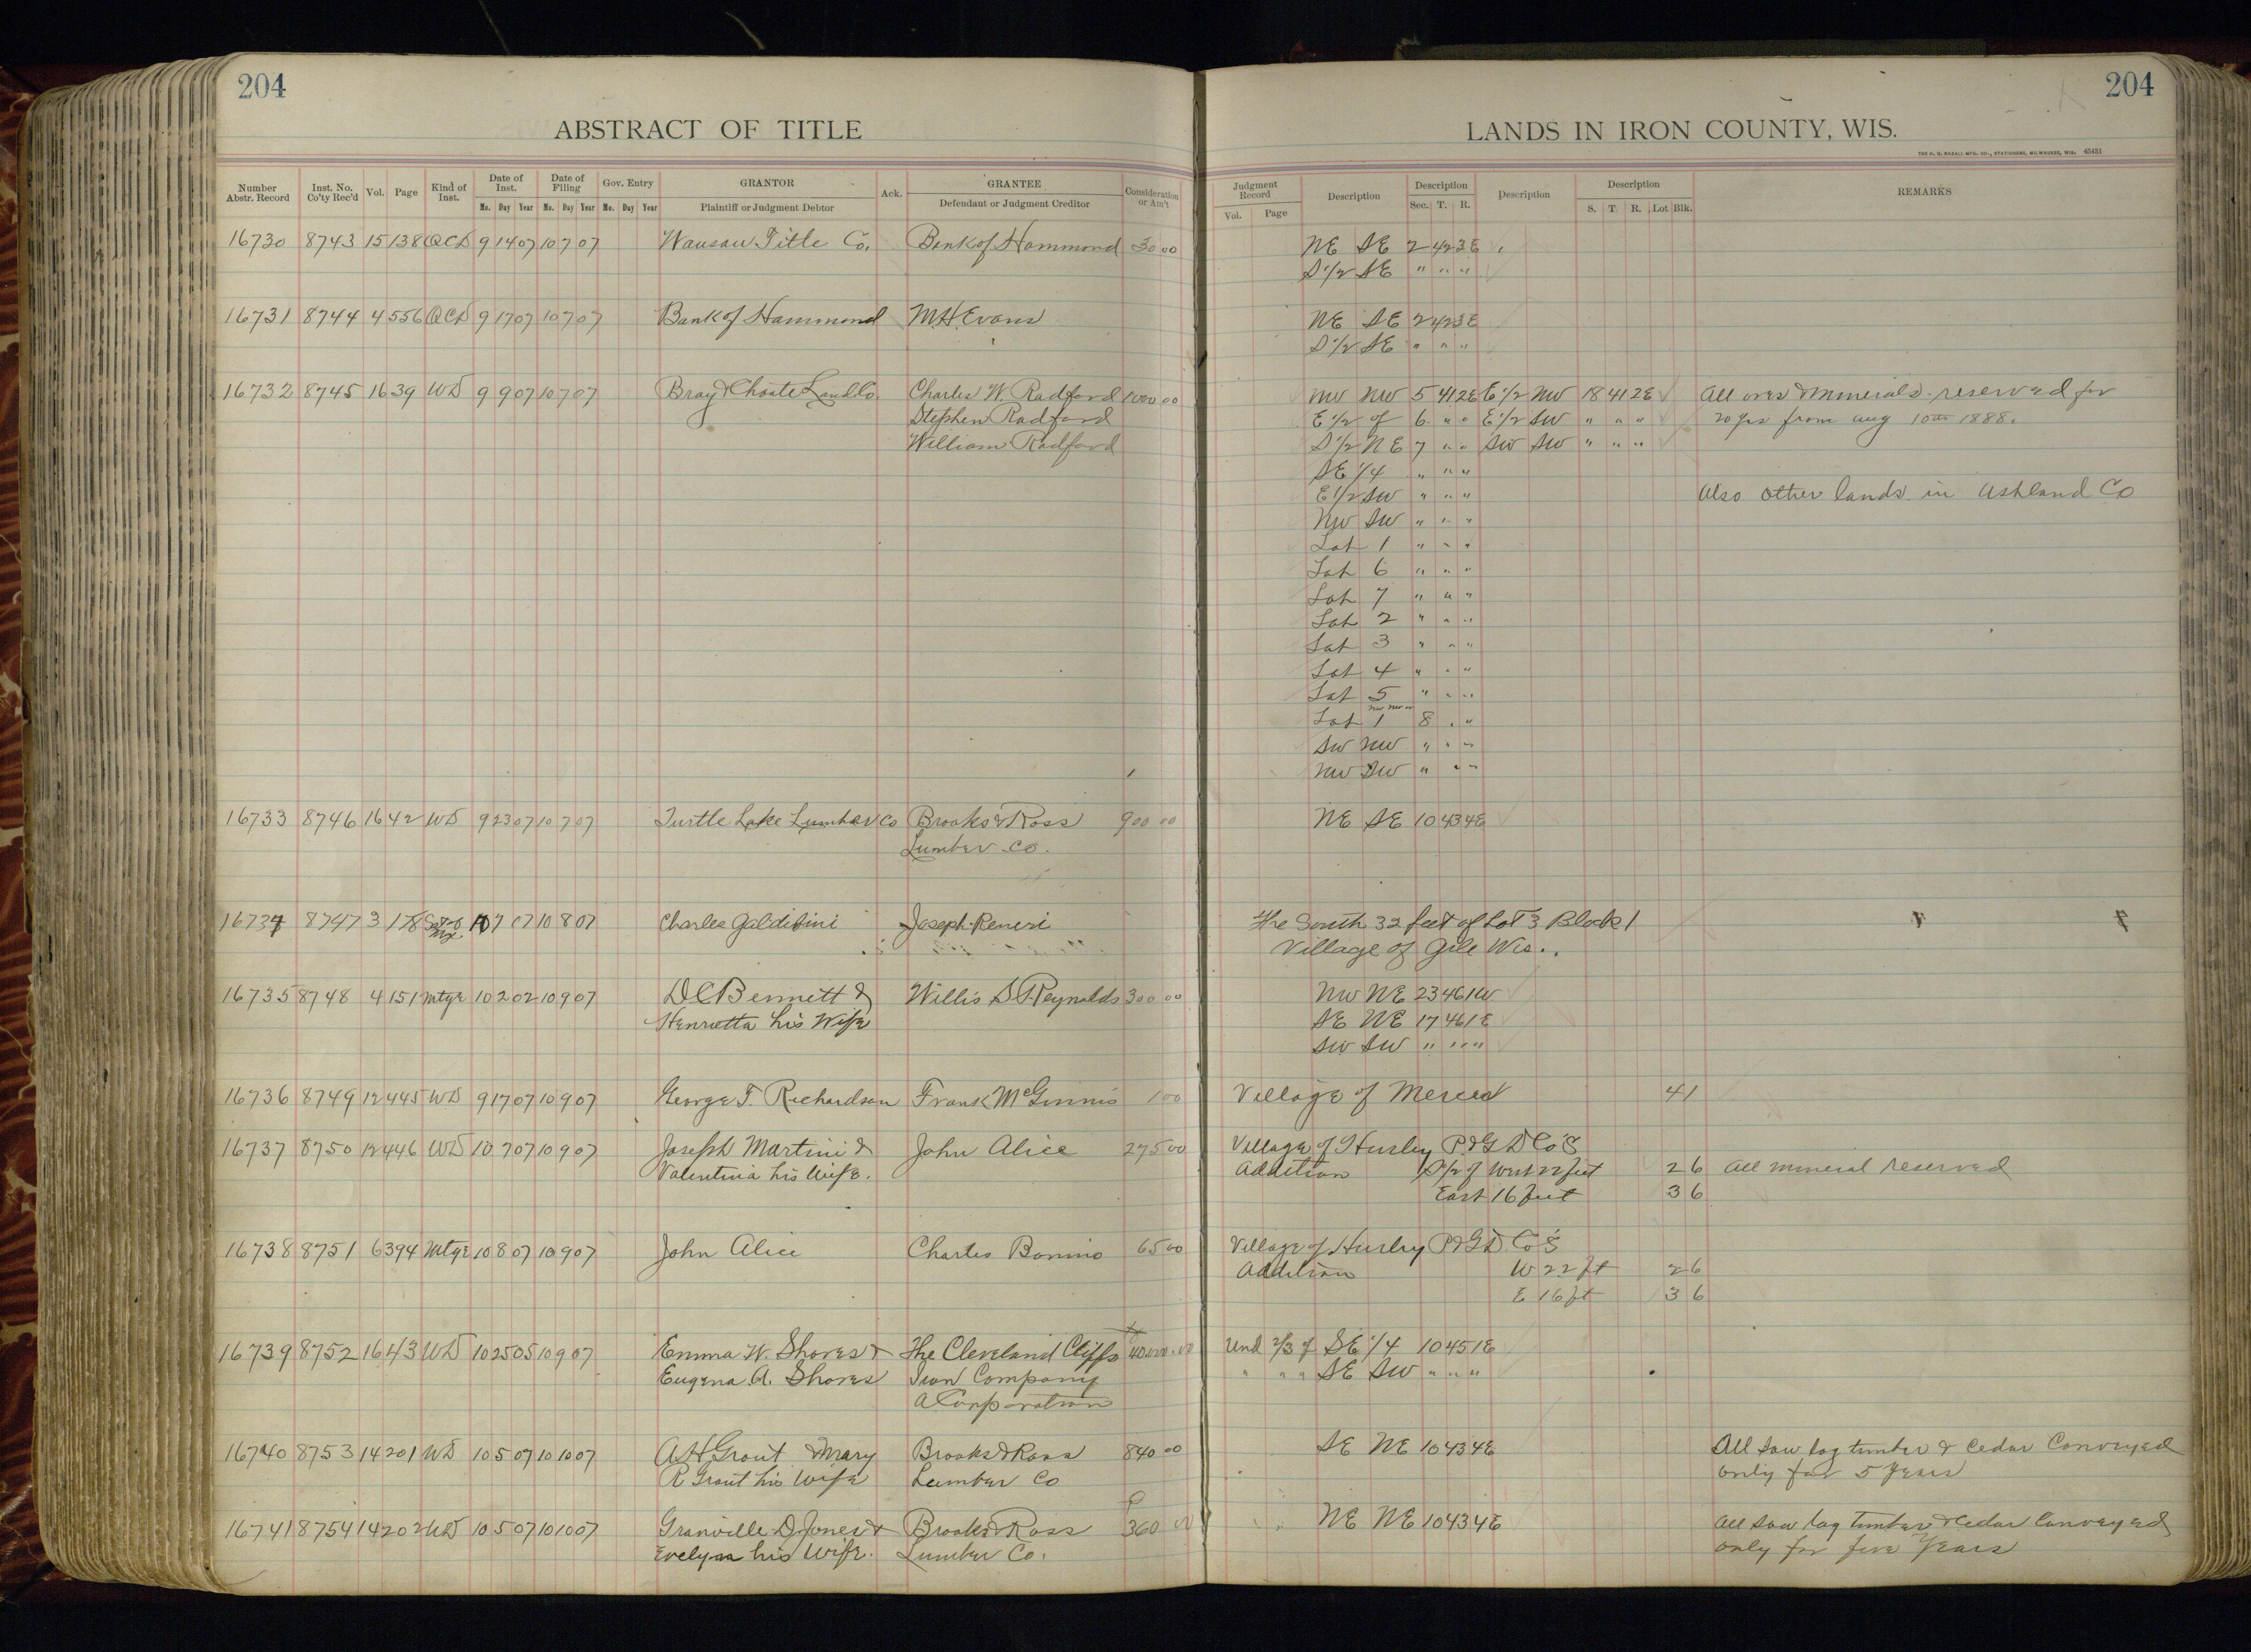 204
204
ABSTRACT OF TITLE
LANDS IN IRON COUNTY, WIS.
THE H. H. WEST MFG. CO., STATIONERS, MILWAUKEE, WIS. 45431
Number Abstr. Record Inst. No. Co'ty Rec'd Vol. Page Kind of Inst. Date of Inst. Mo. Day Year Date of Filing Mo. Day Year Gov. Entry Mo. Day Year GRANTOR Plaintiff or Judgment Debtor Ack. GRANTEE Defendant or Judgment Creditor Consideration or Am't
Judgment Record Vol. Page Description Description Sec. T. R. Description Description S. T. R. Lot Blk. REMARKS
16730 8743 15 138 QCD 9 14 07 10 7 07 Wausau Title Co. Bank of Hammond 30 00 NE SE 2 42 3E
S 1/2 SE " " "
16731 8744 4 556 QCD 9 17 07 10 7 07 Bank of Hammond M.H. Evans NE SE 2 42 3E
S 1/2 SE " " "
16732 8745 16 39 WD 9 9 07 10 7 07 Bray & Choate Land Co. Charles W. Radford 1000 00 NW NW 5 41 2E E 1/2 NW 18 41 2E All ores & minerals reserved for
Stephen Radford E 1/2 of 6 " " E 1/2 SW " " " 20 yrs from Aug 10th 1888.
William Radford S 1/2 NE 7 " " SW SW " " "
SE 1/4 " " "
E 1/2 SW " " " Also other lands in Ashland Co
NW SW " " "
Lot 1 " " "
Lot 6 " " "
Lot 7 " " "
Lot 2 " " "
Lot 3 " " "
Lot 4 " " "
Lot 5 " " "
Lot 1 8 " "
SW NW " " "
NW SW " " "
16733 8746 16 42 WD 9 23 07 10 7 07 Turtle Lake Lumber Co Brooks & Ross 900 00 NE SE 10 43 4E
Lumber Co.
16734 8747 3 178 10 7 07 10 8 07 Charles Galdifini Joseph Reneri The South 32 feet of Lot 3 Block 1
Village of Gile Wis.
16735 8748 4 151 Mtge 10 2 02 10 9 07 D C Bennett & Willis S. P. Reynolds 300 00 NW NE 23 46 1W
Henrietta his Wife SE NE 17 46 1E
SW SW " " "
16736 8749 12 445 WD 9 17 07 10 9 07 George T. Richardson Frank McGinnis 1 00 Village of Mercer 41
16737 8750 12 446 WD 10 7 07 10 9 07 Joseph Martini & John Alice 275 00 Village of Hurley P & G D Co's
Valentina his Wife. Addition S 1/2 of West 22 feet 2 6 All mineral reserved
East 16 feet 3 6
16738 8751 6 394 Mtge 10 8 07 10 9 07 John Alice Charles Bonino 65 00 Village of Hurley P & G D Co's
Addition W 22 ft 2 6
E 16 ft 3 6
16739 8752 16 43 WD 10 25 05 10 9 07 Emma W. Shores & The Cleveland Cliffs 40,000.00 Und 2/3 of SE 1/4 10 45 1E
Eugena A. Shores Iron Company " " " SE SW " " "
A Corporation
16740 8753 14 201 WD 10 5 07 10 10 07 A H Grout & Mary Brooks & Ross 840 00 SE NE 10 43 4E All saw log timber & cedar conveyed
R Grout his Wife Lumber Co only for 5 Years
16741 8754 14 202 WD 10 5 07 10 10 07 Granville D. Jones & Brooks & Ross 360 00 NE NE 10 43 4E All saw log timber & cedar conveyed
Evelyn his Wife. Lumber Co. only for five Years